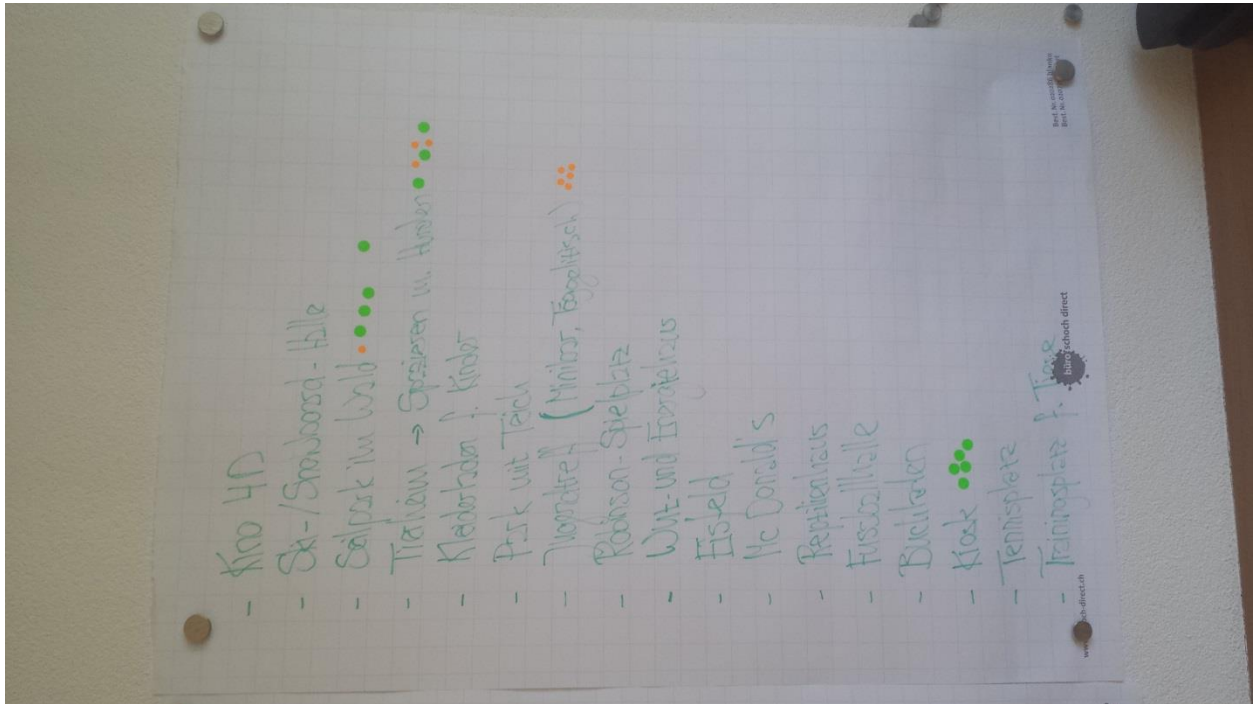 - Kino 4D
- Ski-/Snowboard-Halle
- Seilpark im Wald
- Tierheim → Spazieren m. Hunden
- Kleiderladen f. Kinder
- Park mit Teich
- Jugendtreff (Minibar, Töggelitisch)
- Robinson-Spielplatz
- Wut- und Energiehaus
- Eisfeld
- Mc Donald's
- Reptilienhaus
- Fussballhalle
- Buchladen
- Kiosk
- Tennisplatz
- Trainingsplatz f. Tiere
büro schoch direct